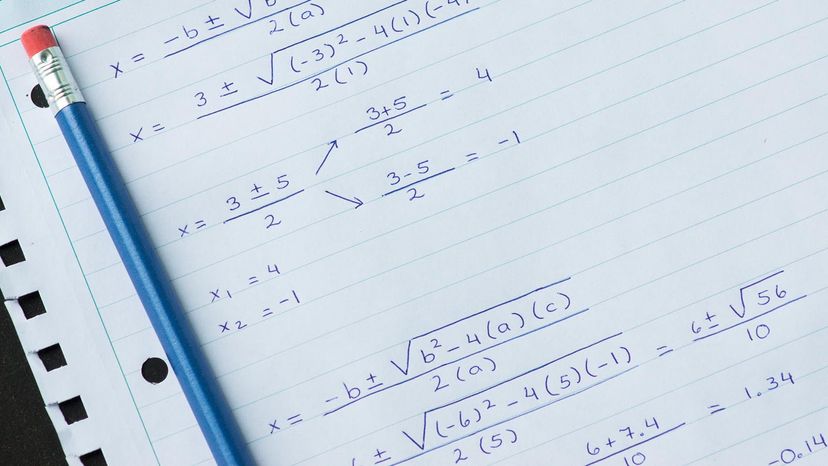 x = (-b ± √b / 2(a)
x = 3 ± √(-3)² - 4(1)(-4) / 2(1)
x = 3 ± 5 / 2
3+5 / 2 = 4
3-5 / 2 = -1
x₁ = 4
x₂ = -1
x = -b ± √b² - 4(a)(c) / 2(a)
6 ± √(-6)² - 4(5)(-1) / 2(5) = 6 ± √56 / 10
6 + 7.4 / 10 = 1.34
-0.14